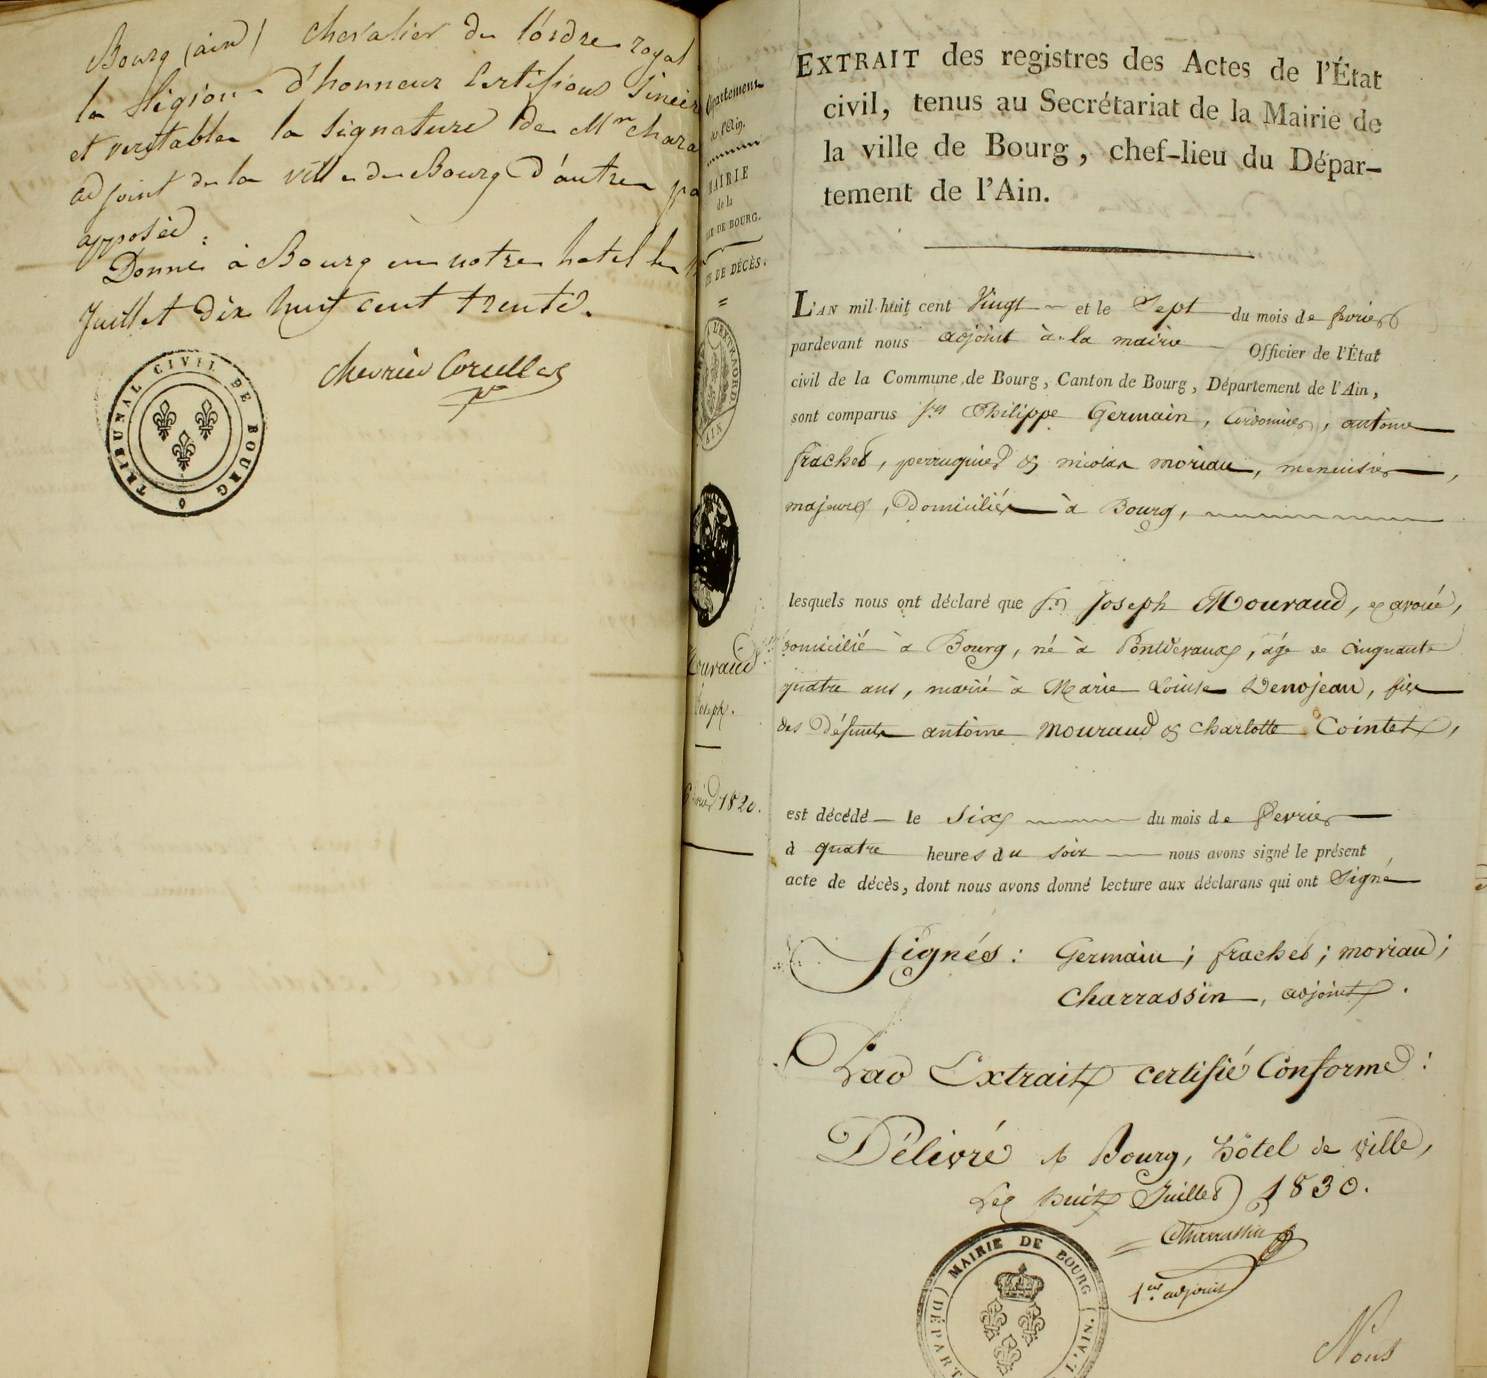 Bourg (ain) Chevalier de l'ordre royal
la légion d'honneur Certifions Sincère
et véritable la Signature de Mr Charra
adjoint de la ville de Bourg d'autre pa
apposée.
Donné à Bourg en notre hotel le
Juillet dix huit cent trente.
Chevrier Corcelles
TRIBUNAL CIVIL DE BOURG
épartement
de l'Ain.
MAIRIE
de la
LE DE BOURG.
TE DE DÉCÈS.
=
L'EXTRAORD
AIN
Mouraud
Joseph.
février 1820.
EXTRAIT des registres des Actes de l'État
civil, tenus au Secrétariat de la Mairie de
la ville de Bourg, chef-lieu du Dépar-
tement de l'Ain.
L'AN mil huit cent Vingt et le Sept du mois de fevrier
pardevant nous adjoint à la mairie Officier de l'État
civil de la Commune de Bourg, Canton de Bourg, Département de l'Ain,
sont comparus srs Philippe Germain, Cordonnier, antoine
frachet, perruquier & nicolas moriau, menuisier,
majeurs, Domiciliés à Bourg,
lesquels nous ont déclaré que sr Joseph Mouraud, ex avoué,
domicilié à Bourg, né à Pontdevaux, âgé de Cinquante
quatre ans, marié à Marie Louise Denojean, fils
des défunts antoine Mouraud & Charlotte Cointet,
est décédé le Six du mois de fevrier
à quatre heures du soir nous avons signé le présent
acte de décès, dont nous avons donné lecture aux déclarans qui ont Signé
Signés : Germain ; frachet ; moriau ;
Charrassin, adjoint.
Pao Extrait certifié Conforme :
Délivré à Bourg, hôtel de ville,
Le huit Juillet 1830.
Charrassin
1er adjoint
MAIRIE DE BOURG (DÉPART L'AIN.)
Nous